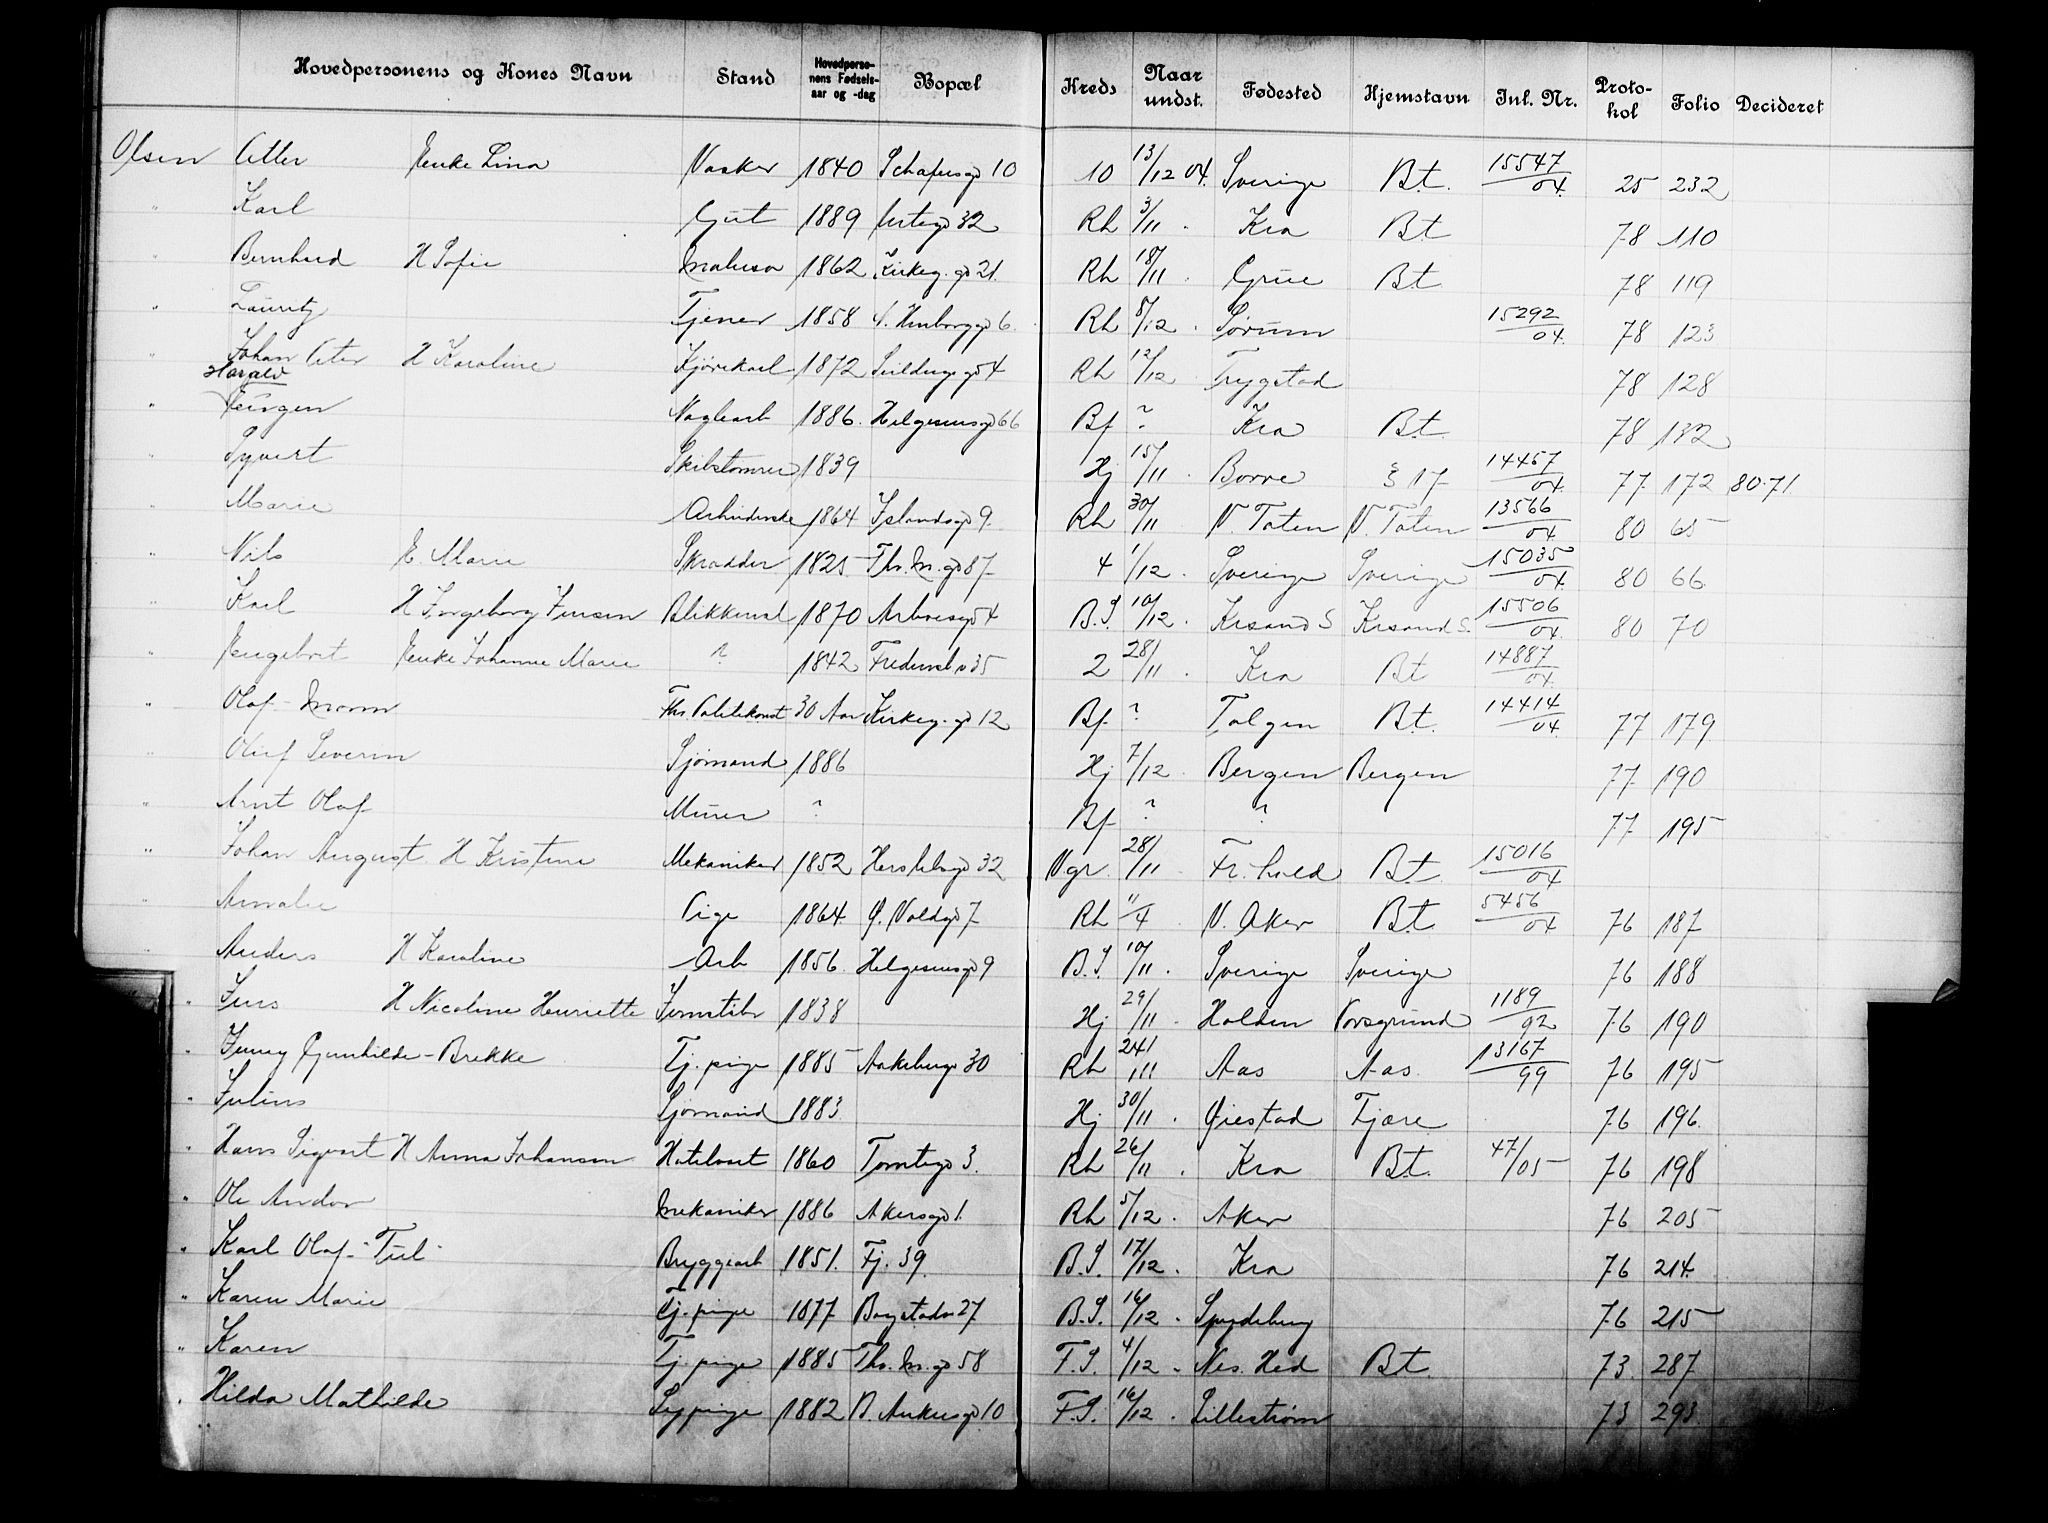 Hovedpersonens og Kones Navn Stand Hovedperso-nens Fødsels-aar og -dag Bopæl Kreds Naar undst. Fødested Hjemstavn Inl. Nr. Proto-kol Folio Decideret
Olsen Enke Lina Vasker 1840 10 13/12 04. Sverige Bt. 15547/04. 25 232
" Karl Gut 1889 32 Rh 3/11 . Kra Bt 78 110
" Bernhard H Sofie 1862 Kirkeg. gd 21. Rh 18/11 Grue Bt 78 119
" Lauritz Tjener 1858 6. Rh 8/12 . Sørum 15292/04. 78 123
" Johan H Karoline Kjørekarl 1872 54 Rh 12/12 . Trygstad 78 128
Harald
" Jørgen Naglearb 1886. Helgesensgd 66 Bf ? Kra Bt. 78 132
" Syvert Skibstømrer 1839 Hj 15/11 . Borre § 17 14457/04. 77 172 80.71
" Marie Arbeiderske 1864 Islandsgd 9. Rh 30/11 V. Toten V. Toten 13566/04 80 65
" Nils E. Marie Skrædder 1825 Th. M. gd 87 4 1/12 . Sverige Sverige 15035/04. 80 66.
" Karl H Ingeborg Jensen Blikkensl 1870 54 B.S. 10/12 . Krsand S Krsand S. 15506/04. 80 70
" Engebret Enke Johanne Marie ? 1842 35 2 28/11 . Kra Bt 14887/04.
" Olaf - Moren Fhv. Politikonst 30 Aar Kirkeg. gd 12 Bf ? Tolgen Bt. 14414/04. 77 179.
" Oluf Severin Sjømand 1886 Hj 7/12 . Bergen Bergen 77 190
" Arnt Olaf Murer ? Bf ? ? 77 195
" Johan August H Kristine Mekaniker 1852 Herslebsgd 32 Vgr. 28/11 . Fr.hald Bt. 15016/04
" Amalie Pige 1864. Ø. Voldgd 7. Rh 11/4 V. Aker Bt. 5456/04 76 187.
" Anders H Karoline Arb 1856. Helgesensgd 9 B.S. 10/11 . Sverige Sverige 76 188
" Jens H Nicoline Henriette Jernstøber 1838 Hj 29/11 . Holden Porsgrund 1189/92 76 190
" Jenny Gunhilde - Brekke Tj. pige 1885 Aakebergv 30 Rh 24/11 Aas Aas. 13167/99 76 195
" Julius Sjømand 1883. Hj 30/11 . Øiestad Fjære 76 196.
" Hans Sigvart H Anna Johansen 1860 Tomtegd 3. Rh 26/11 . Kra Bt. 47/05 76 198
" Ole Andor Mekaniker 1886 Akersgd 1. Rh 5/12 . Aker 76 205
" Karl Olaf - "Tul" Bryggearb 1851. Fj. 39. B.S. 17/12 . Kra 76 214.
" Karen Marie Tj. pige 1877 Bogstadv 27 B.S. 16/12 . Spydeberg 76 215
" Karen Tj. pige 1885 Th. M. gd 58 F.S. 4/12 . Nes. Hed Bt. 73. 287
" Hilda Mathilde Sypige 1882 B. Ankersgd 10 F.S. 16/12 . Lillestrøm 73 293.